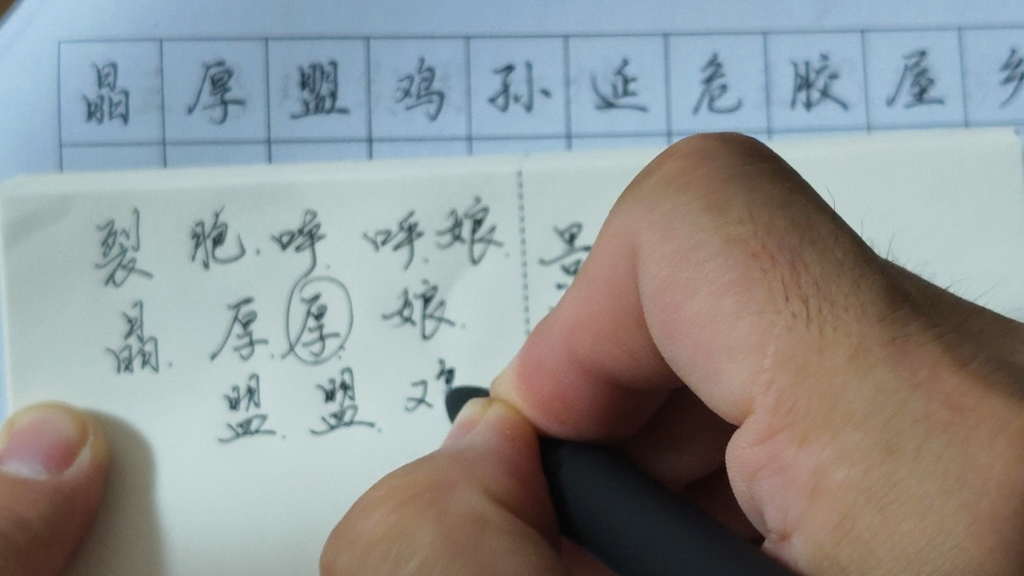 晶厚盟鸡孙延危胶屋
裂 胞.呼.呼.娘.
晶.厚.厚.娘.
盟.盟.